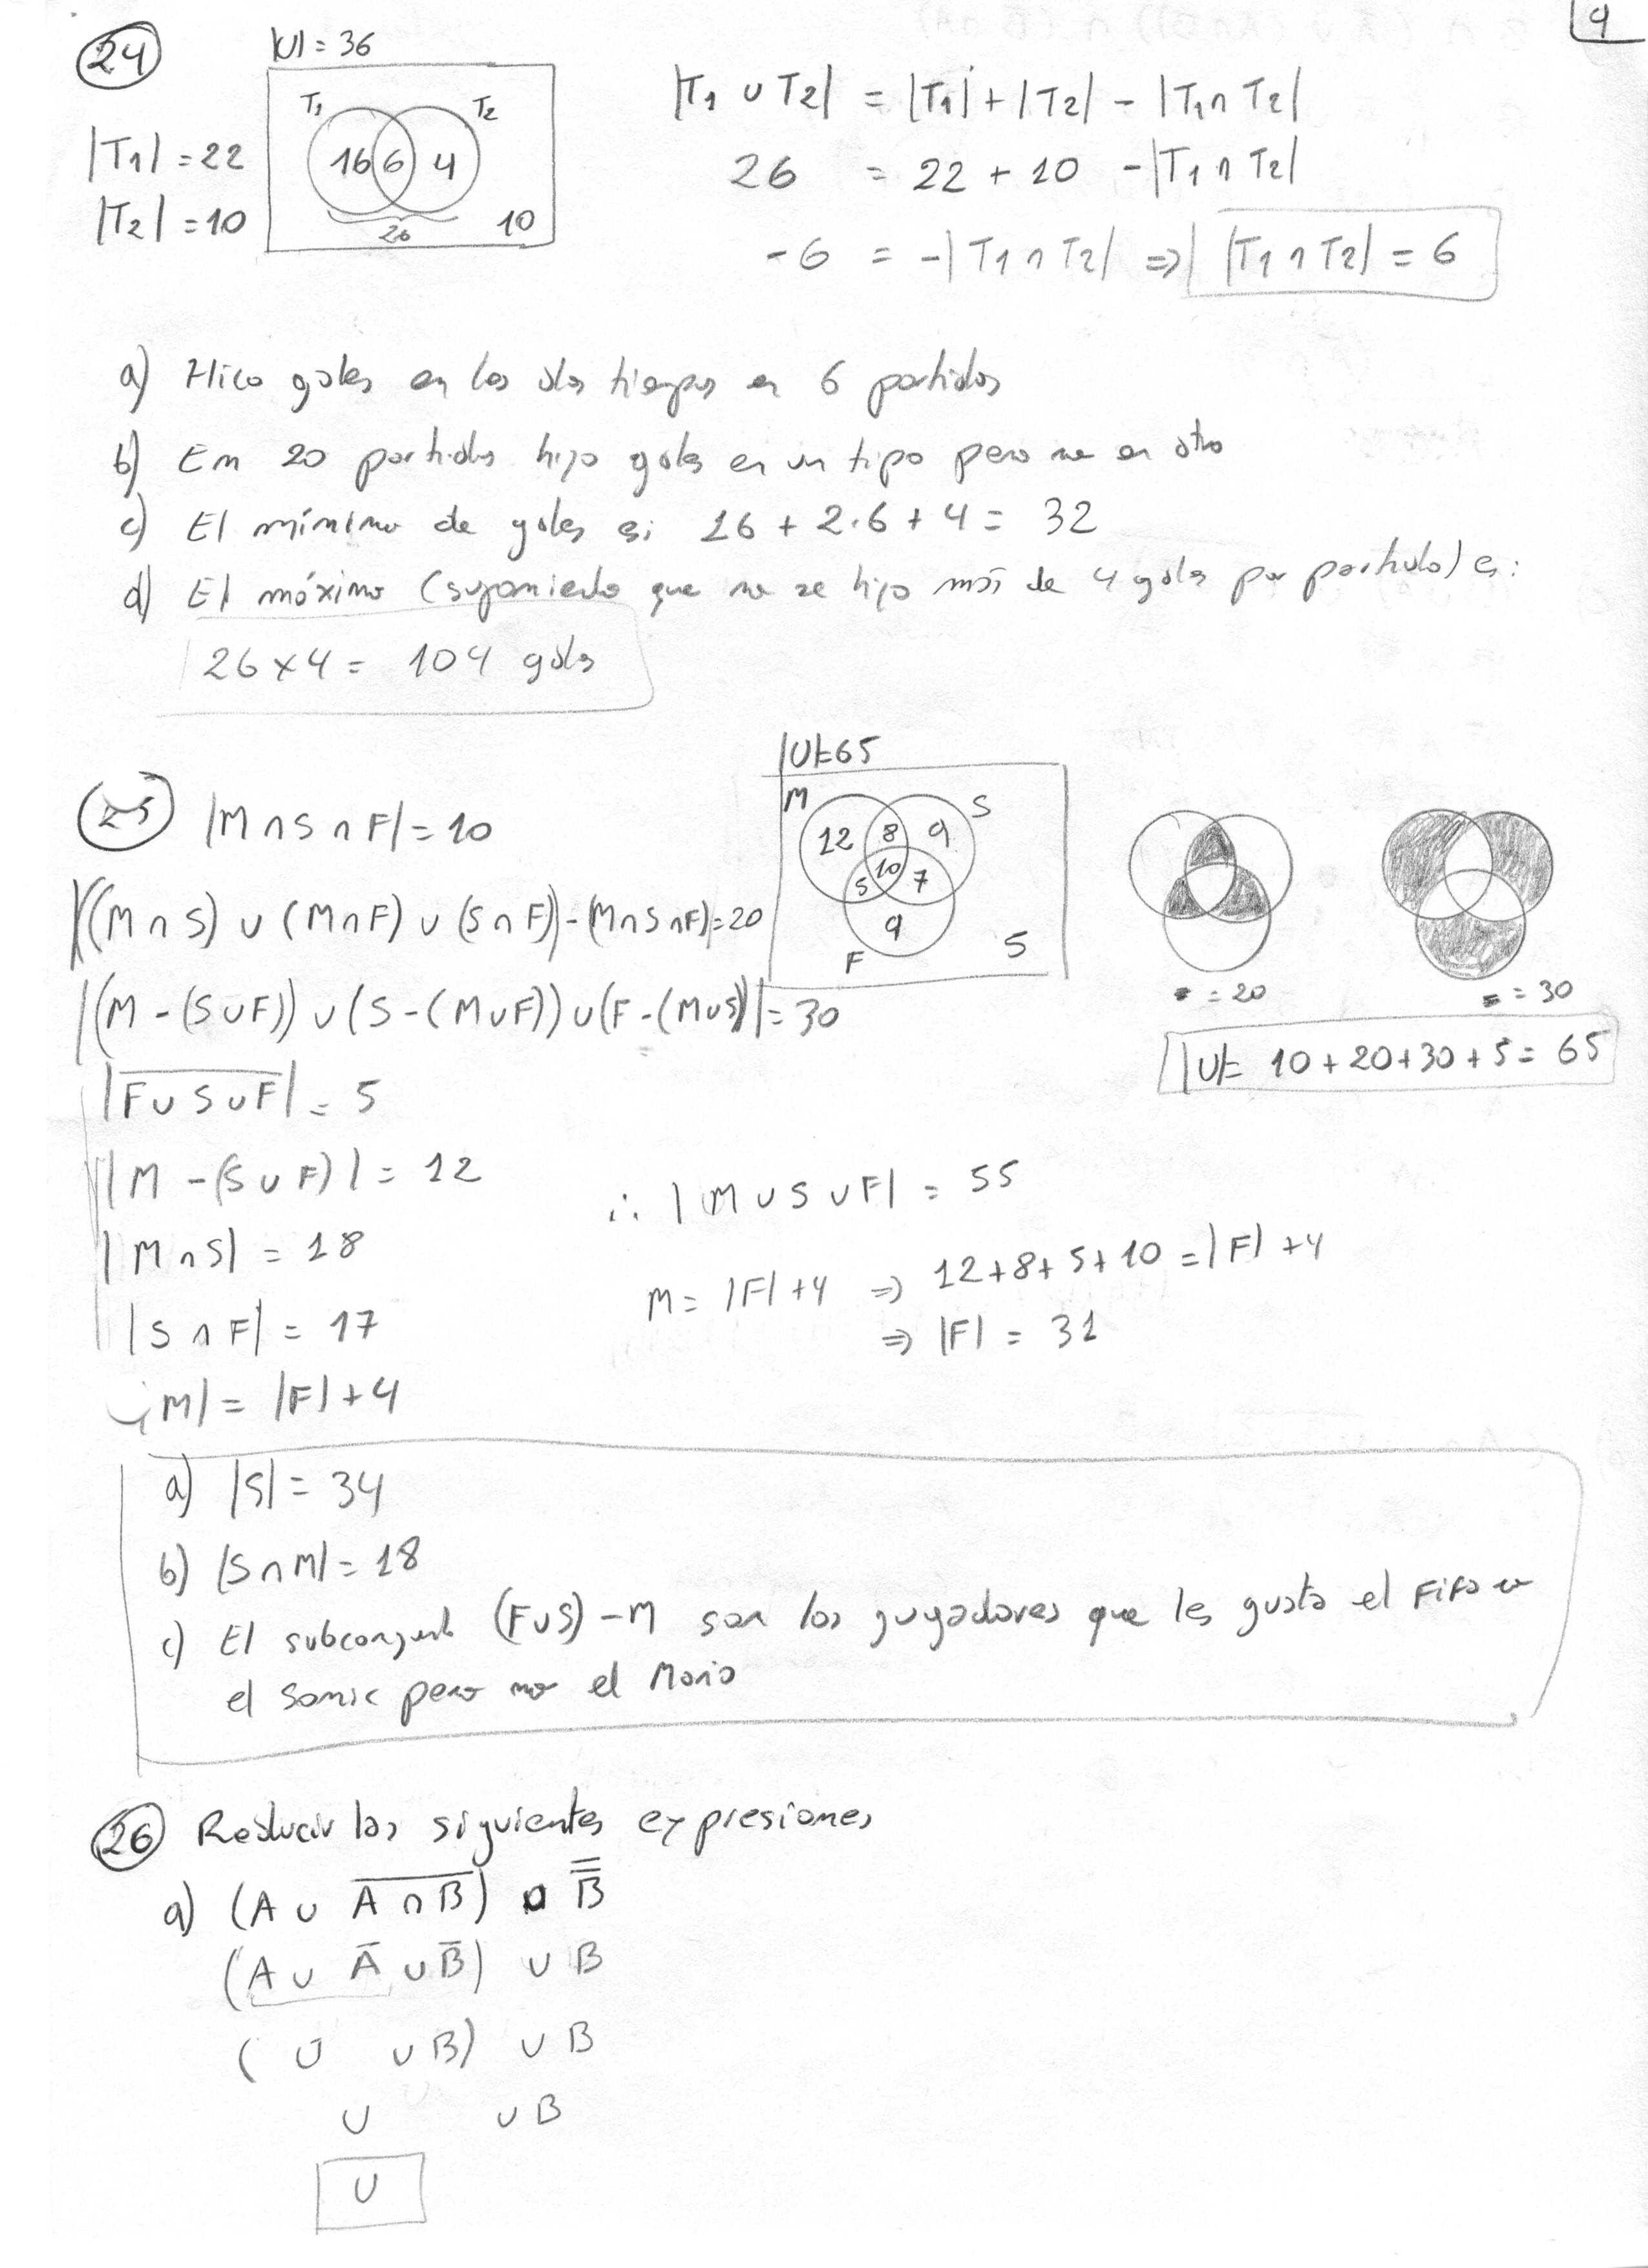 9
24
|U| = 36
T1 T2
|T1| = 22
16 6 4
|T2| = 10
26 10
|T1 ∪ T2| = |T1| + |T2| - |T1 ∩ T2|
26 = 22 + 10 - |T1 ∩ T2|
-6 = -|T1 ∩ T2| ⇒ |T1 ∩ T2| = 6
a) Hizo goles en los dos tiempos en 6 partidos
b) En 20 partidos hizo goles en un tipo pero no en otro
c) El mínimo de goles es: 16 + 2·6 + 4 = 32
d) El máximo (suponiendo que no se hizo más de 4 goles por partido) es:
26 x 4 = 104 goles
25 |M ∩ S ∩ F| = 10
|U| = 65
M S
12 8 9
10
5 7
9
F 5
= 20
= 30
|U| = 10 + 20 + 30 + 5 = 65
|((M ∩ S) ∪ (M ∩ F) ∪ (S ∩ F)) - (M ∩ S ∩ F)| = 20
|(M - (S ∪ F)) ∪ (S - (M ∪ F)) ∪ (F - (M ∪ S))| = 30
|F̅ ̅∪̅ ̅S̅ ̅∪̅ ̅F̅| = 5
|M - (S ∪ F)| = 12
|M ∩ S| = 18
|S ∩ F| = 17
|M| = |F| + 4
∴ |M ∪ S ∪ F| = 55
M = |F| + 4 ⇒ 12 + 8 + 5 + 10 = |F| + 4
⇒ |F| = 31
a) |S| = 34
b) |S ∩ M| = 18
c) El subconjunto (F ∪ S) - M son los jugadores que les gusta el Fifa o
el Sonic pero no el Mario
26 Reducir las siguientes expresiones
a) (A ∪ A̅ ̅∩̅ ̅B̅) ∪ B̿
(A ∪ A̅ ∪ B̅) ∪ B
( U ∪ B) ∪ B
U ∪ B
U